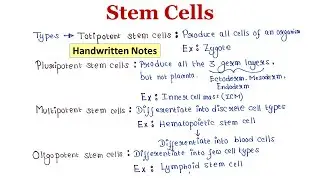 Stem Cells
Types → Totipotent stem cells : Produce all cells of an organism
Ex : Zygote
Handwritten Notes
Pluripotent stem cells : Produce all the 3 germ layers,
but not placenta. Ectoderm, Mesoderm,
Endoderm
Ex : Inner cell mass (ICM)
Multipotent stem cells : Differentiate into discrete cell types
Ex : Hematopoietic stem cell
Differentiate into blood cells
Oligopotent stem cells : Differentiate into few cell types
Ex : Lymphoid stem cell